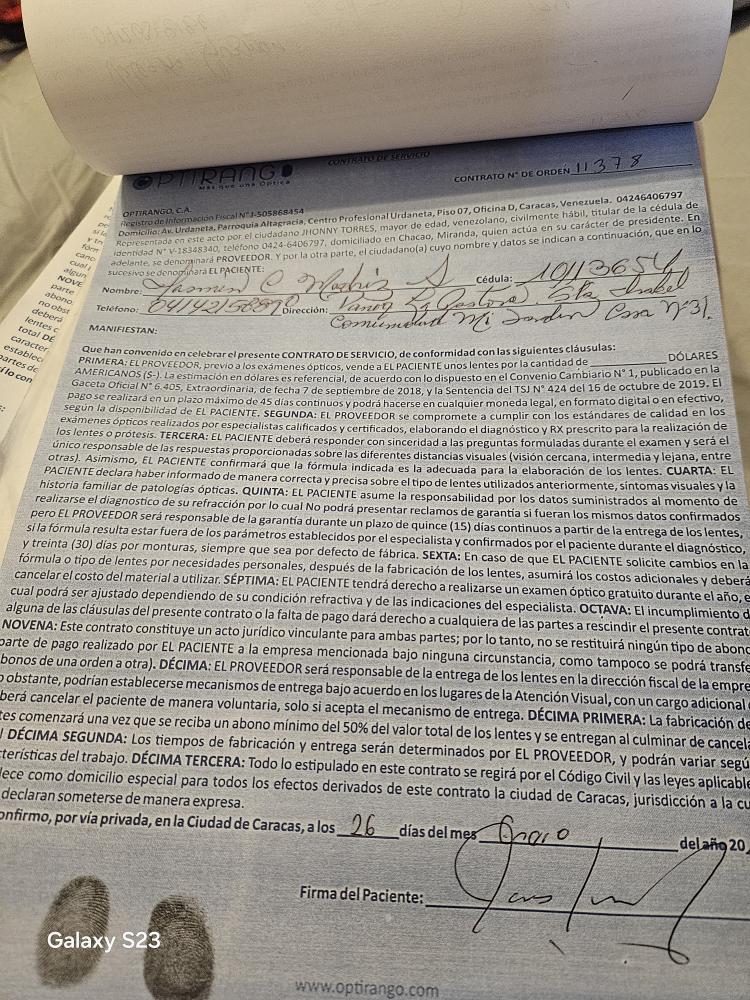 CONTRATO DE SERVICIO
OPTIRANGO
Más que una Óptica
CONTRATO N° DE ORDEN 11378
OPTIRANGO, C.A.
Registro de Información Fiscal N°J-505868454
Domicilio: Av. Urdaneta, Parroquia Altagracia, Centro Profesional Urdaneta, Piso 07, Oficina D, Caracas, Venezuela. 04246406797
Representada en este acto por el ciudadano JHONNY TORRES, mayor de edad, venezolano, civilmente hábil, titular de la cédula de
identidad N° V-18348340, teléfono 0424-6406797, domiciliado en Chacao, Miranda, quien actúa en su carácter de presidente. En
adelante, se denominará PROVEEDOR. Y por la otra parte, el ciudadano(a) cuyo nombre y datos se indican a continuación, que en lo
sucesivo se denominará EL PACIENTE:
Nombre: C Cédula: 10113654
Teléfono: Dirección: La Pastora. Sta Isabel
Comunidad Mi Jardin Casa N°31.
MANIFIESTAN:
Que han convenido en celebrar el presente CONTRATO DE SERVICIO, de conformidad con las siguientes cláusulas:
PRIMERA: EL PROVEEDOR, previo a los exámenes ópticos, vende a EL PACIENTE unos lentes por la cantidad de ____________ DÓLARES
AMERICANOS (S-). La estimación en dólares es referencial, de acuerdo con lo dispuesto en el Convenio Cambiario N° 1, publicado en la
Gaceta Oficial N° 6.405, Extraordinaria, de fecha 7 de septiembre de 2018, y la Sentencia del TSJ N° 424 del 16 de octubre de 2019. El
pago se realizará en un plazo máximo de 45 días continuos y podrá hacerse en cualquier moneda legal, en formato digital o en efectivo,
según la disponibilidad de EL PACIENTE. SEGUNDA: EL PROVEEDOR se compromete a cumplir con los estándares de calidad en los
exámenes ópticos realizados por especialistas calificados y certificados, elaborando el diagnóstico y RX prescrito para la realización de
los lentes o prótesis. TERCERA: EL PACIENTE deberá responder con sinceridad a las preguntas formuladas durante el examen y será el
único responsable de las respuestas proporcionadas sobre las diferentes distancias visuales (visión cercana, intermedia y lejana, entre
otras). Asimismo, EL PACIENTE confirmará que la fórmula indicada es la adecuada para la elaboración de los lentes. CUARTA: EL
PACIENTE declara haber informado de manera correcta y precisa sobre el tipo de lentes utilizados anteriormente, síntomas visuales y la
historia familiar de patologías ópticas. QUINTA: EL PACIENTE asume la responsabilidad por los datos suministrados al momento de
realizarse el diagnostico de su refracción por lo cual No podrá presentar reclamos de garantía si fueran los mismos datos confirmados
pero EL PROVEEDOR será responsable de la garantía durante un plazo de quince (15) días continuos a partir de la entrega de los lentes,
si la fórmula resulta estar fuera de los parámetros establecidos por el especialista y confirmados por el paciente durante el diagnóstico,
y treinta (30) días por monturas, siempre que sea por defecto de fábrica. SEXTA: En caso de que EL PACIENTE solicite cambios en la
fórmula o tipo de lentes por necesidades personales, después de la fabricación de los lentes, asumirá los costos adicionales y deberá
cancelar el costo del material a utilizar. SÉPTIMA: EL PACIENTE tendrá derecho a realizarse un examen óptico gratuito durante el año, e
cual podrá ser ajustado dependiendo de su condición refractiva y de las indicaciones del especialista. OCTAVA: El incumplimiento d
alguna de las cláusulas del presente contrato o la falta de pago dará derecho a cualquiera de las partes a rescindir el presente contrat
NOVENA: Este contrato constituye un acto jurídico vinculante para ambas partes; por lo tanto, no se restituirá ningún tipo de abono
parte de pago realizado por EL PACIENTE a la empresa mencionada bajo ninguna circunstancia, como tampoco se podrá transfe
bonos de una orden a otra). DÉCIMA: EL PROVEEDOR será responsable de la entrega de los lentes en la dirección fiscal de la empre
obstante, podrían establecerse mecanismos de entrega bajo acuerdo en los lugares de la Atención Visual, con un cargo adicional
berá cancelar el paciente de manera voluntaria, solo si acepta el mecanismo de entrega. DÉCIMA PRIMERA: La fabricación de
tes comenzará una vez que se reciba un abono mínimo del 50% del valor total de los lentes y se entregan al culminar de cancela
DÉCIMA SEGUNDA: Los tiempos de fabricación y entrega serán determinados por EL PROVEEDOR, y podrán variar segú
cterísticas del trabajo. DÉCIMA TERCERA: Todo lo estipulado en este contrato se regirá por el Código Civil y las leyes aplicable
lece como domicilio especial para todos los efectos derivados de este contrato la ciudad de Caracas, jurisdicción a la cu
declaran someterse de manera expresa.
onfirmo, por vía privada, en la Ciudad de Caracas, a los 26 días del mes Enero del año 20
Firma del Paciente:
Galaxy S23
www.optirango.com